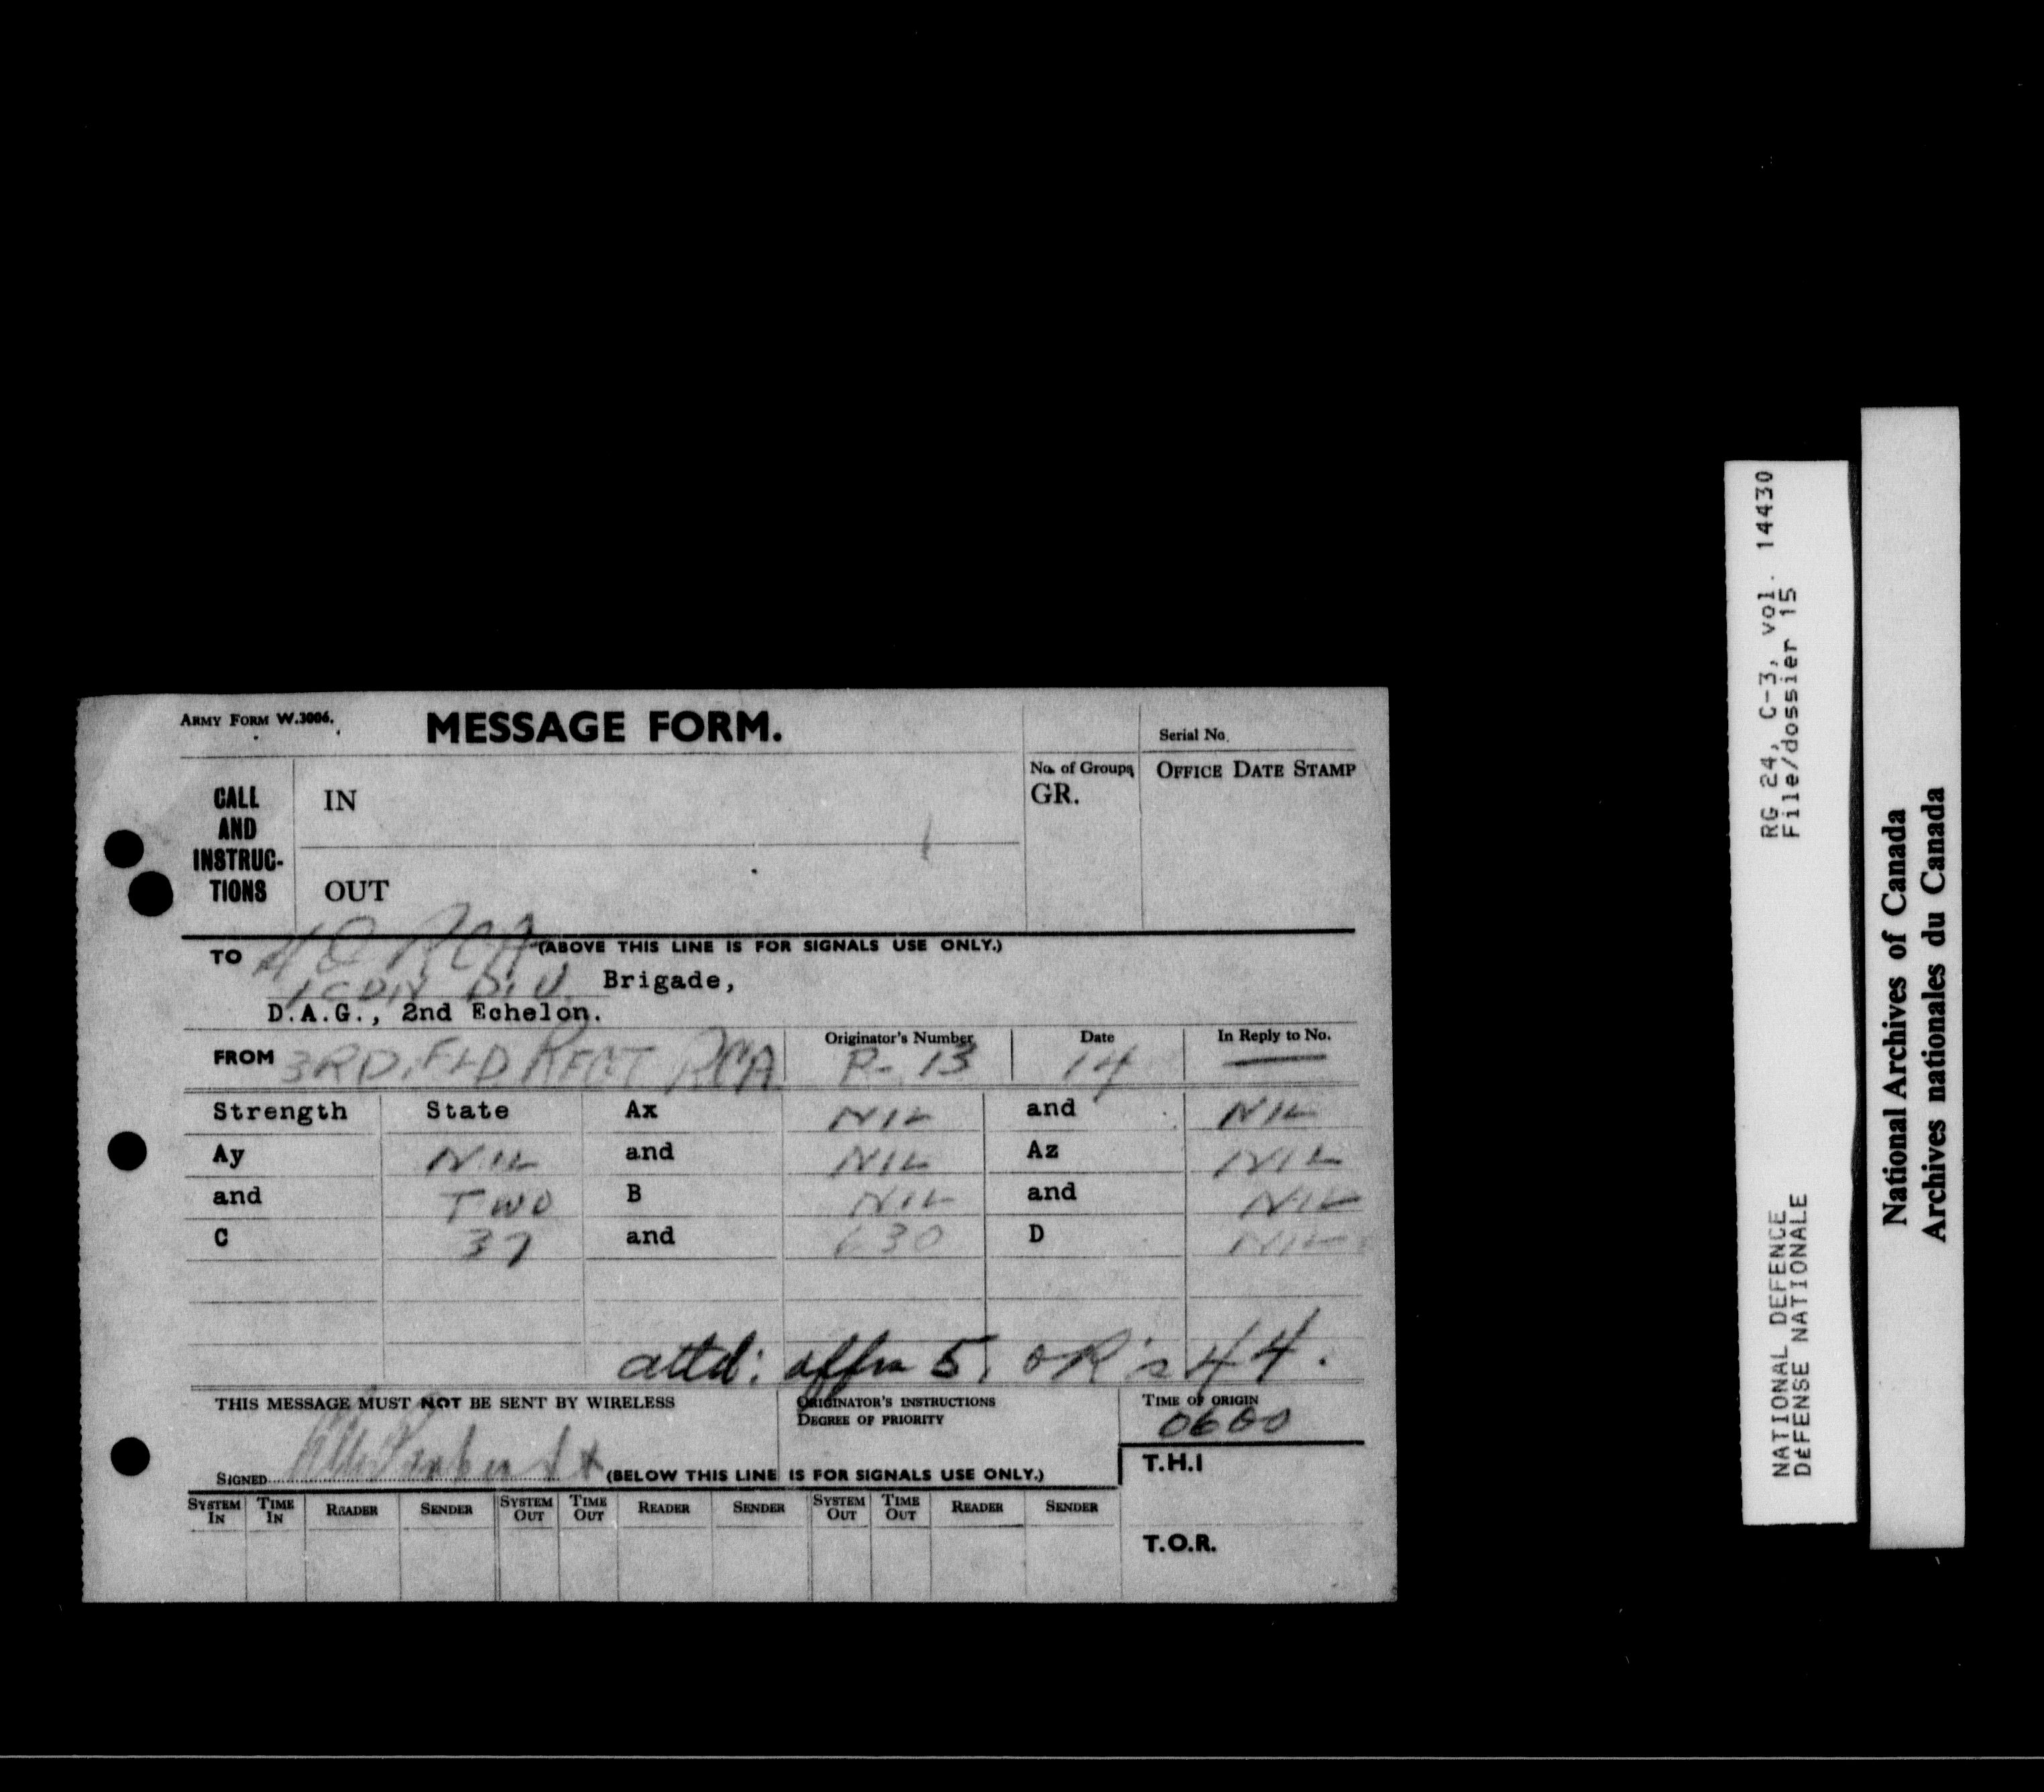 ARMY FORM W.3006.
MESSAGE FORM.
Serial No.
CALL AND INSTRUC-TIONS
IN
No. of Groups
GR.
OFFICE DATE STAMP
OUT
(ABOVE THIS LINE IS FOR SIGNALS USE ONLY.)
TO HQ RCA
1 CDN DIV. Brigade,
D.A.G., 2nd Echelon.
FROM 3RD. FLD REGT RCA
Originator's Number R- 13
Date 14
In Reply to No. —
Strength State Ax NIL and NIL
Ay NIL and NIL Az NIL
and TWO B NIL and NIL
C 37 and 630 D NIL
attd: offrs 5. OR's 44.
THIS MESSAGE MUST NOT BE SENT BY WIRELESS
ORIGINATOR'S INSTRUCTIONS
DEGREE OF PRIORITY
TIME OF ORIGIN
0600
SIGNED
(BELOW THIS LINE IS FOR SIGNALS USE ONLY.)
T.H.I
SYSTEM IN TIME IN READER SENDER SYSTEM OUT TIME OUT READER SENDER SYSTEM OUT TIME OUT READER SENDER
T.O.R.
RG 24, C-3, vol. 14430
File/dossier 15
NATIONAL DEFENCE
DÉFENSE NATIONALE
National Archives of Canada
Archives nationales du Canada